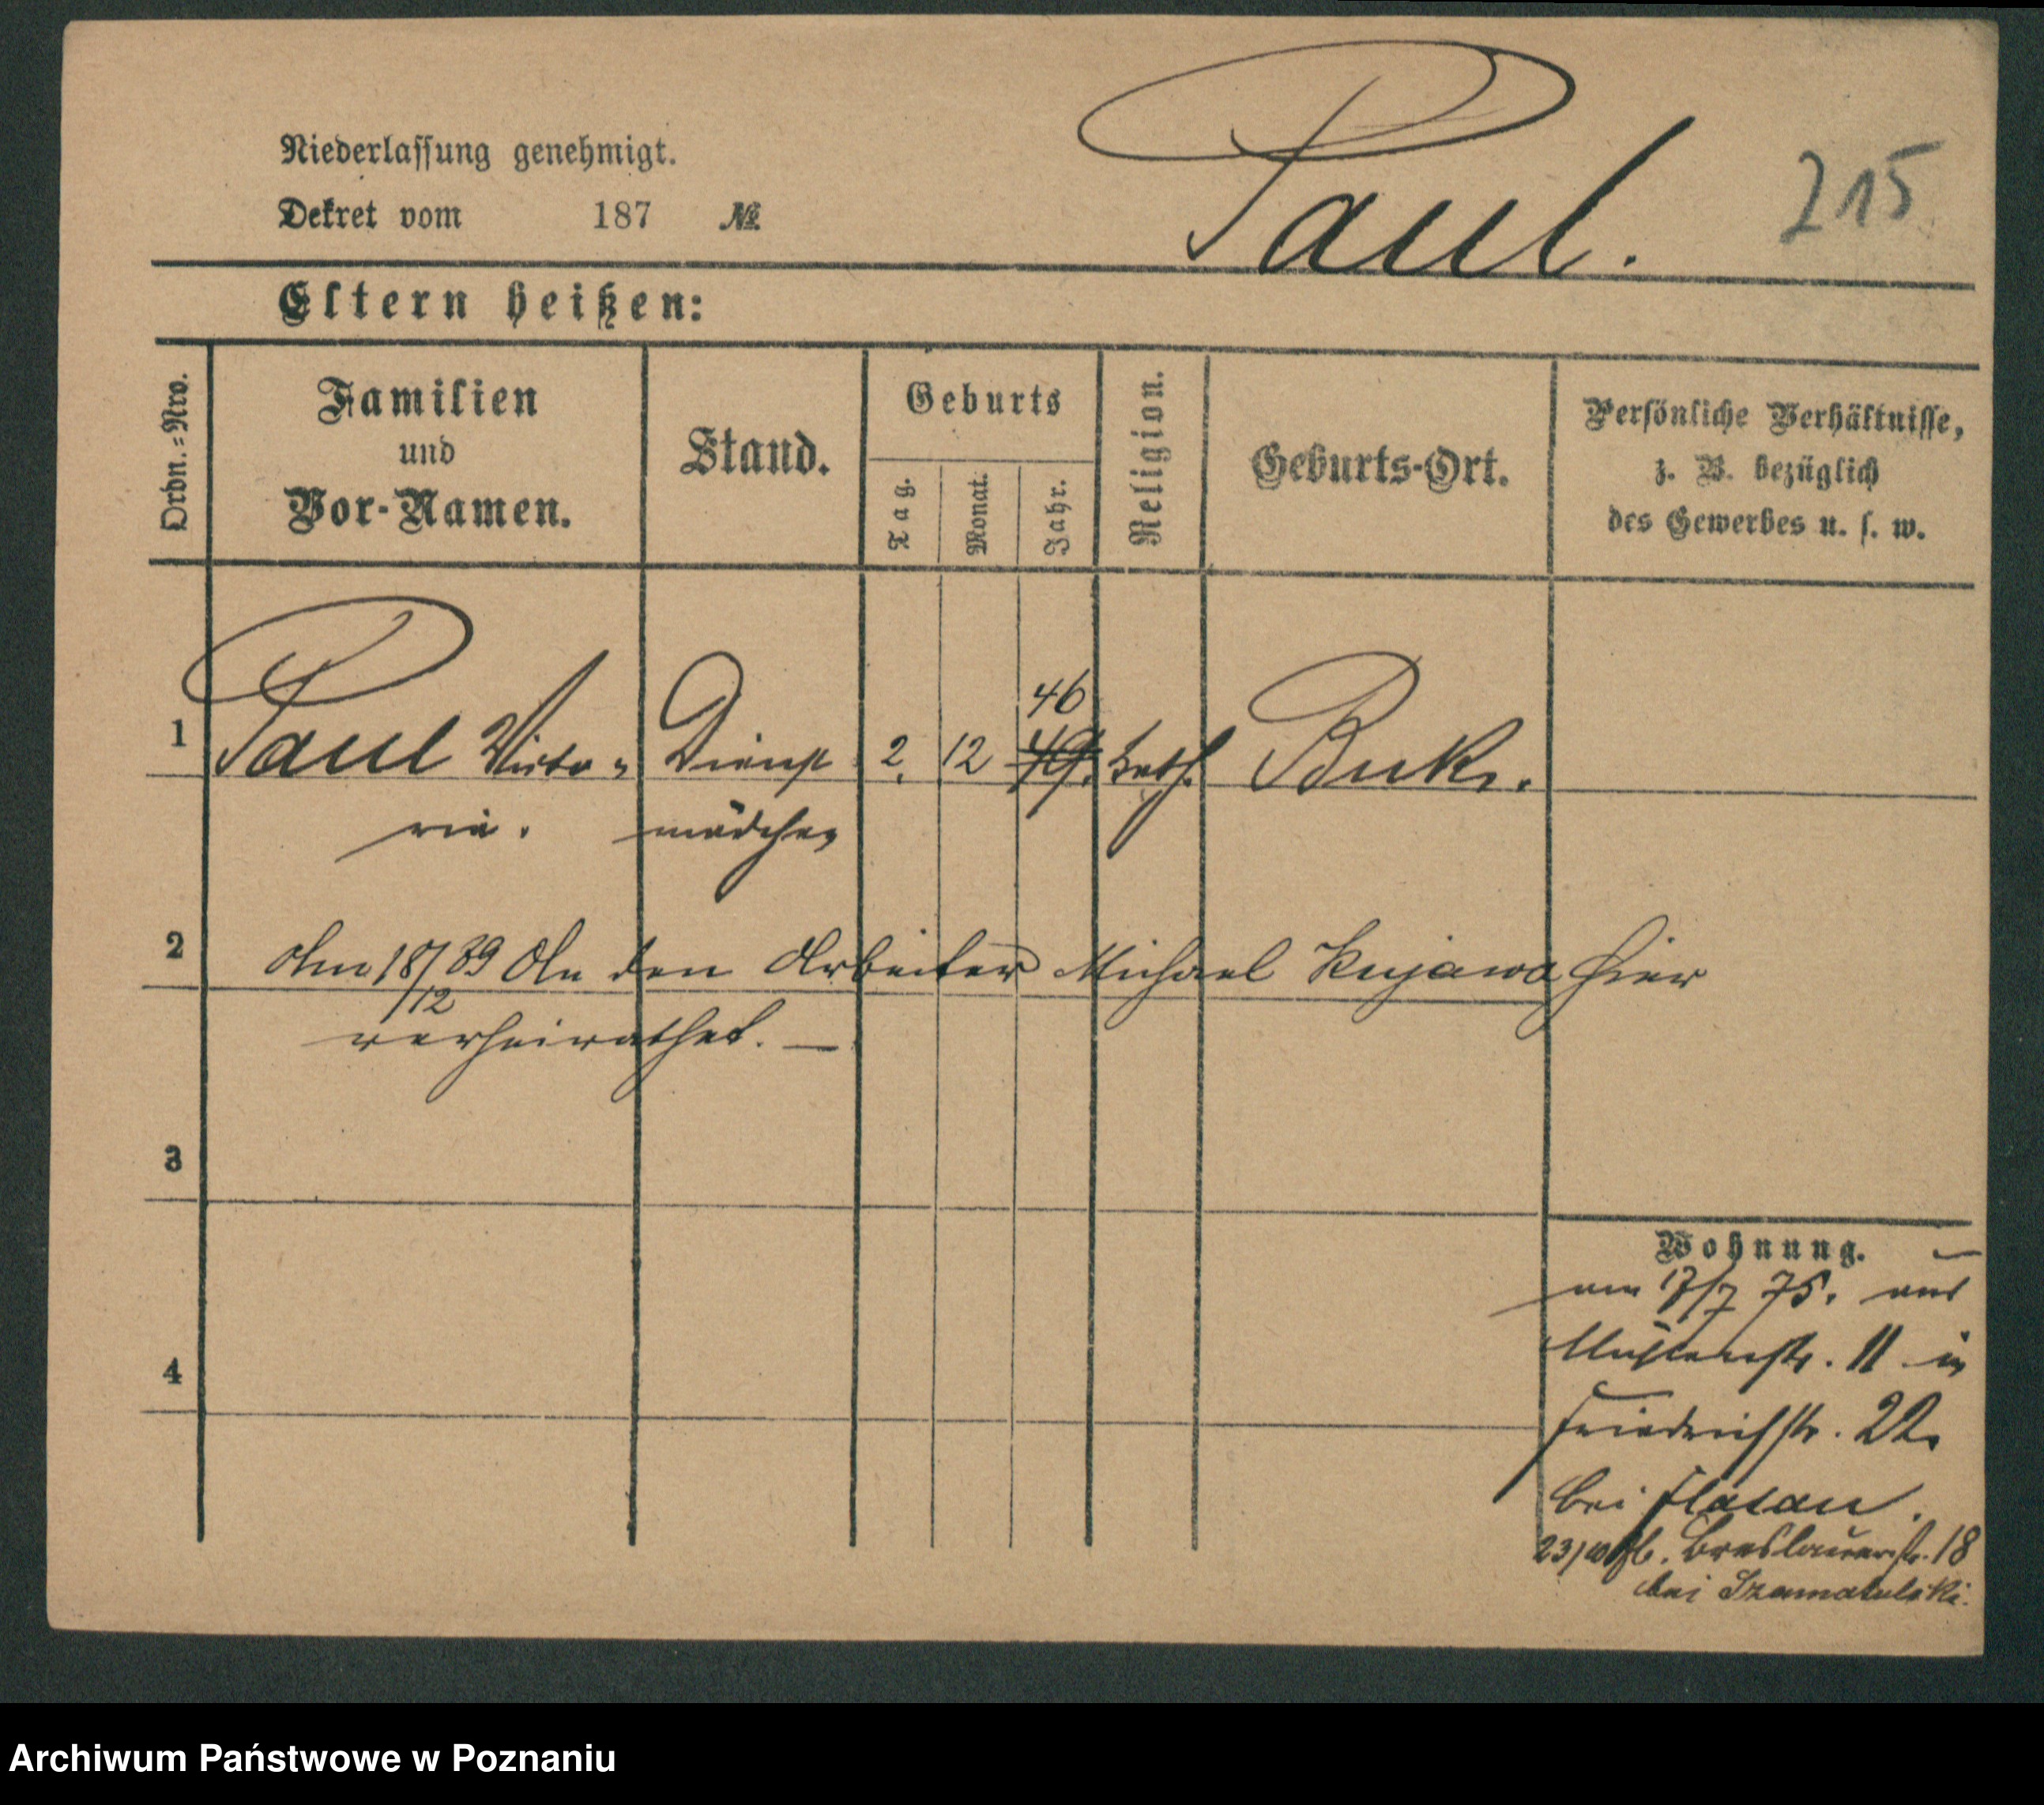 Paul.
215
Niederlassung genehmigt.
Dekret vom 187 №
Eltern heißen:
Ordn.=Nro.
Familien
und
Vor-Namen.
Stand.
Geburts
Tag.
Monat.
Jahr.
Religion.
Geburts-Ort.
Persönliche Verhältnisse,
z. B. bezüglich
des Gewerbes u. s. w.
46
1 Paul Victo= Dienst 2. 12 49. kath. Buk.
ria. mädchen
2 Am 18/12 89 An den Arbeiter Michael Kujawa hier
verheirathet. —
3
4
Wohnung.
am 17/7 75. aus
Mühlenstr. 11 in
Friedrichstr. 22.
bei
23/10 Breslauerstr. 18
bei Szamatulski.
Archiwum Państwowe w Poznaniu